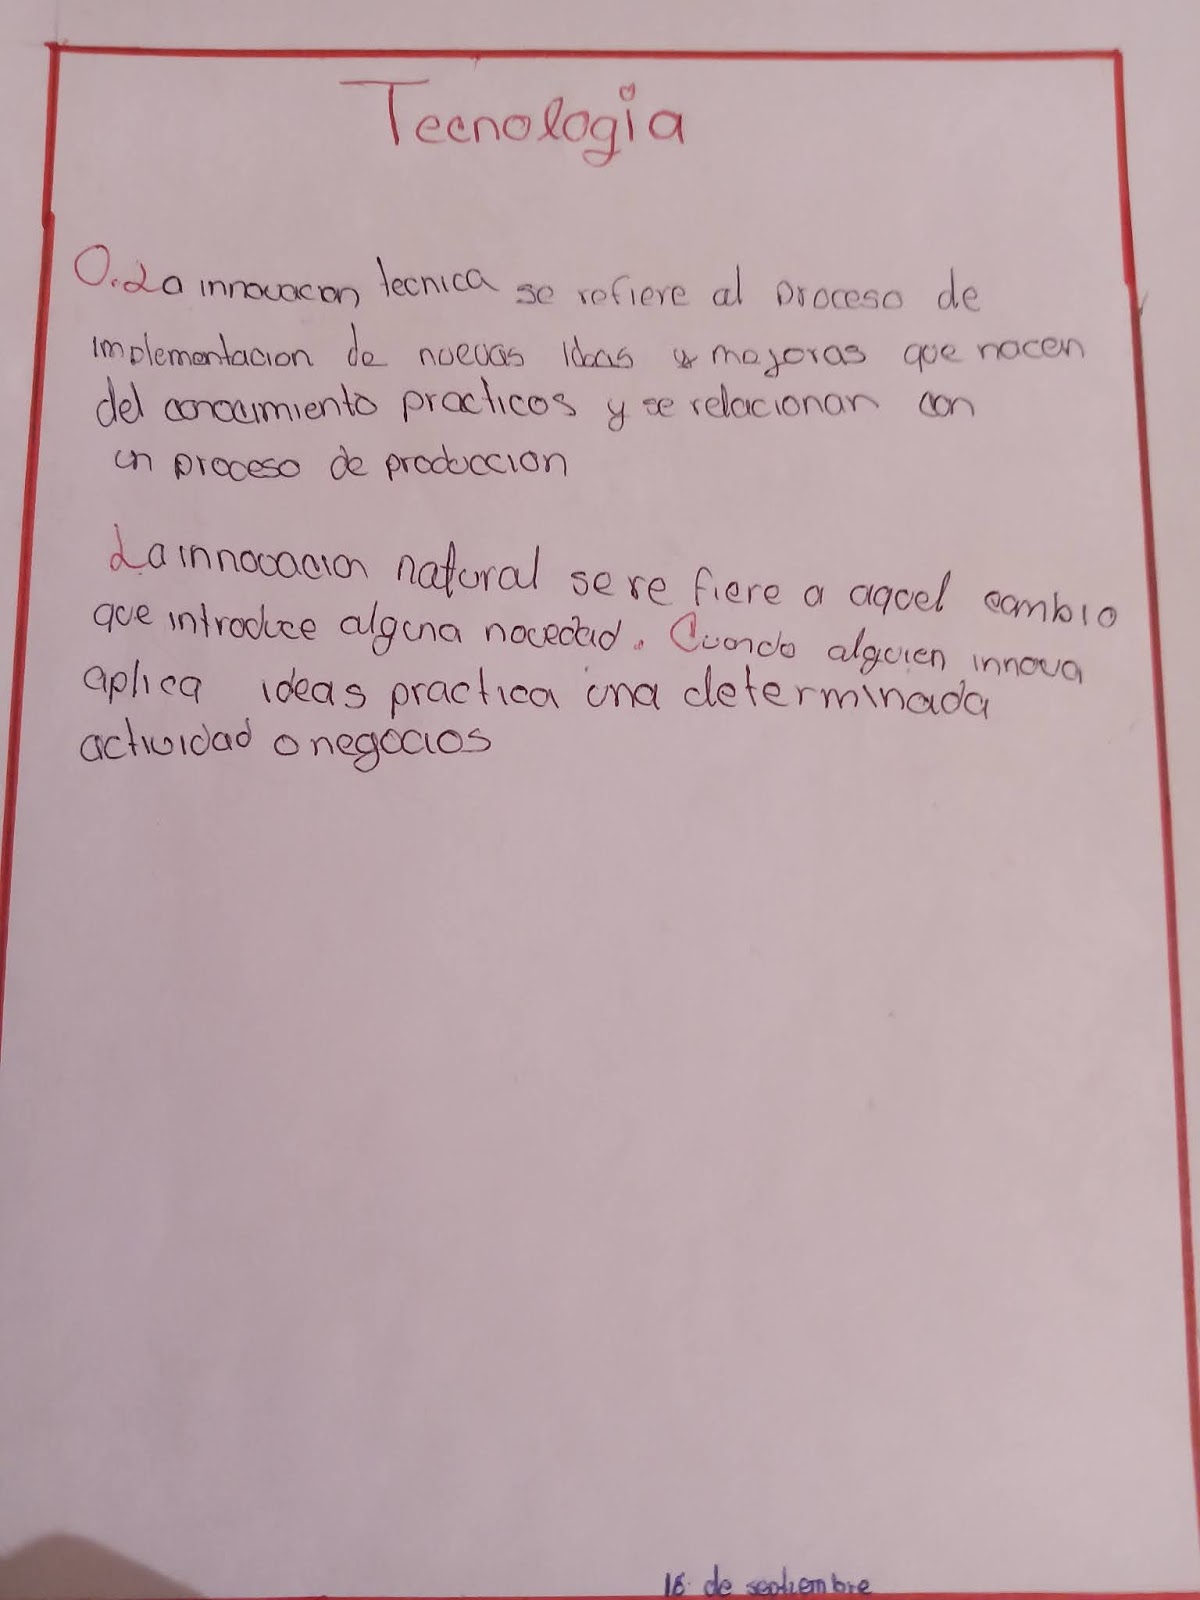 Tecnologia
O. La innovacion tecnica se refiere al proceso de
implementacion de nuevas ideas y mejoras que nacen
del conocimiento practicos y se relacionan con
un proceso de produccion
La innovacion natural se re fiere a aquel cambio
que introduce alguna novedad. Cuando alguien innova
aplica ideas practica una determinada
actividad o negocios
18 de septiembre